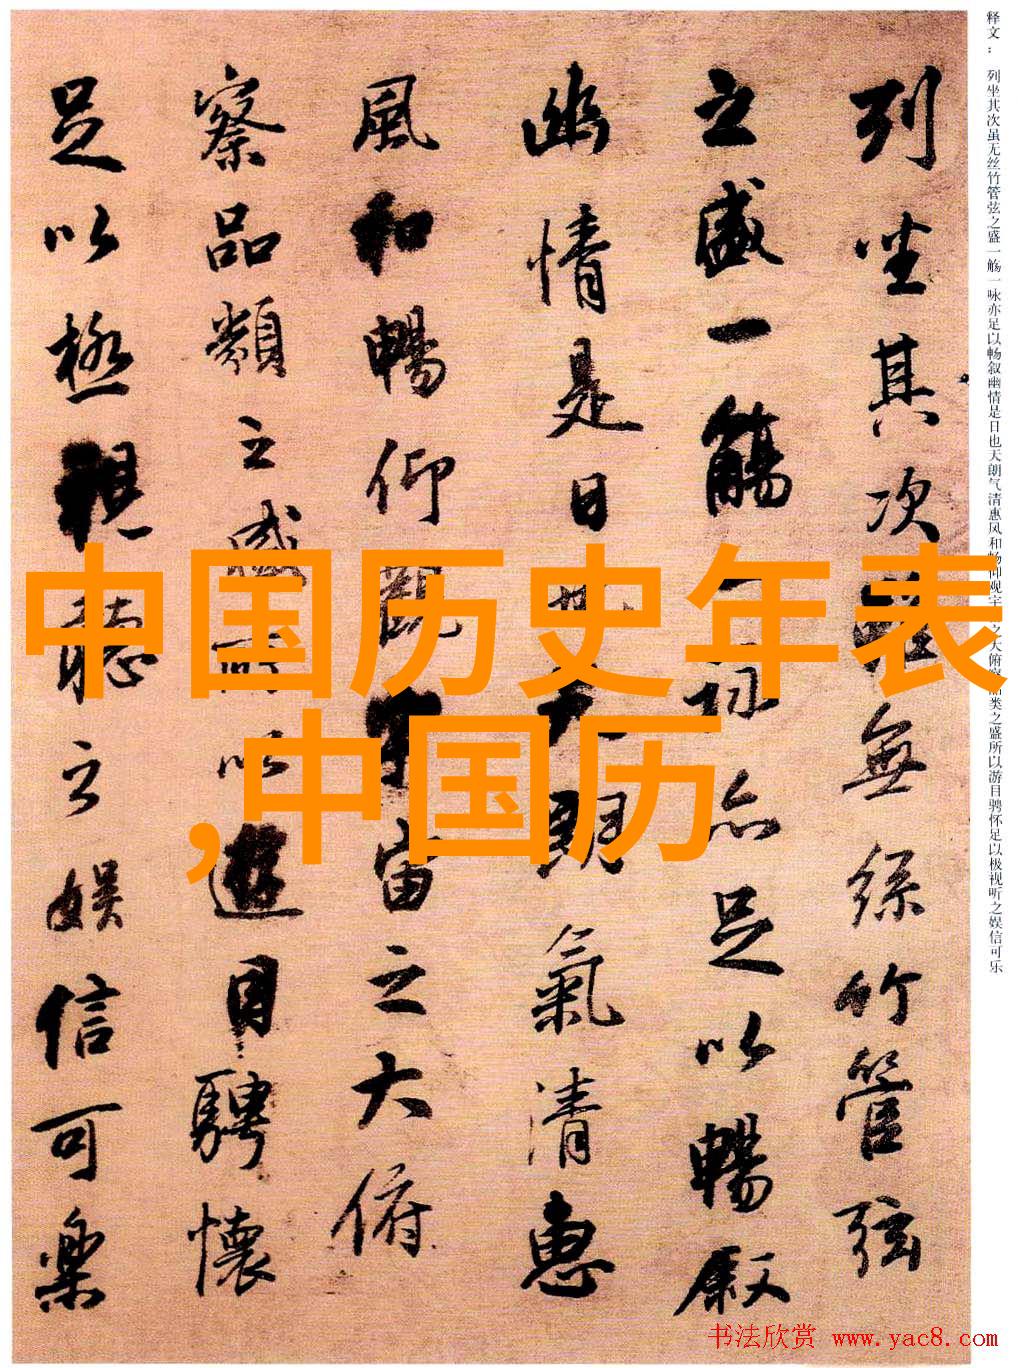 列坐其次雖無絲竹管弦
之盛一觴一詠亦足以暢叙
幽情是日也天朗氣清惠
風和暢仰觀宇宙之大俯
察品類之盛所以遊目騁懷
足以極視聽之娱信可樂
释文： 列坐其次虽无丝竹管弦之盛一觞一咏亦足以畅叙幽情是日也天朗气清惠风和畅仰观宇之大俯察品类之盛所以游目骋怀足以极视听之娱信可乐
中国历史年表
,中国历
书法欣赏 www.yac8.com